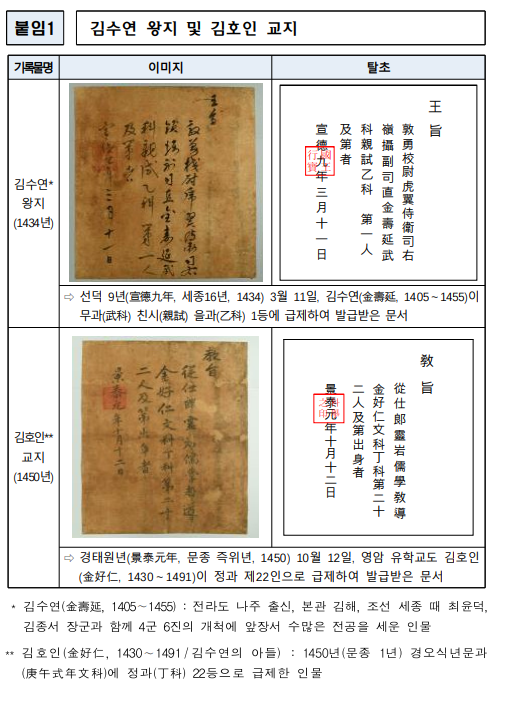 붙임1
김수연 왕지 및 김호인 교지
기록물명
이미지
탈초
김수연*
왕지
(1434년)
王旨
敦勇校尉虎翼侍衛司右
嶺攝副司直金壽延武
科親試乙科 第一人
及第者
宣德九年三月十一日
⇨ 선덕 9년(宣德九年, 세종16년, 1434) 3월 11일, 김수연(金壽延, 1405~1455)이
무과(武科) 친시(親試) 을과(乙科) 1등에 급제하여 발급받은 문서
김호인**
교지
(1450년)
教旨
從仕郎靈岩儒學教導
金好仁文科丁科第二十
二人及第出身者
景泰元年十月十二日
⇨ 경태원년(景泰元年, 문종 즉위년, 1450) 10월 12일, 영암 유학교도 김호인
(金好仁, 1430~1491)이 정과 제22인으로 급제하여 발급받은 문서
* 김수연(金壽延, 1405~1455) : 전라도 나주 출신, 본관 김해, 조선 세종 때 최윤덕,
김종서 장군과 함께 4군 6진의 개척에 앞장서 수많은 전공을 세운 인물
** 김호인(金好仁, 1430~1491/김수연의 아들) : 1450년(문종 1년) 경오식년문과
(庚午式年文科)에 정과(丁科) 22등으로 급제한 인물